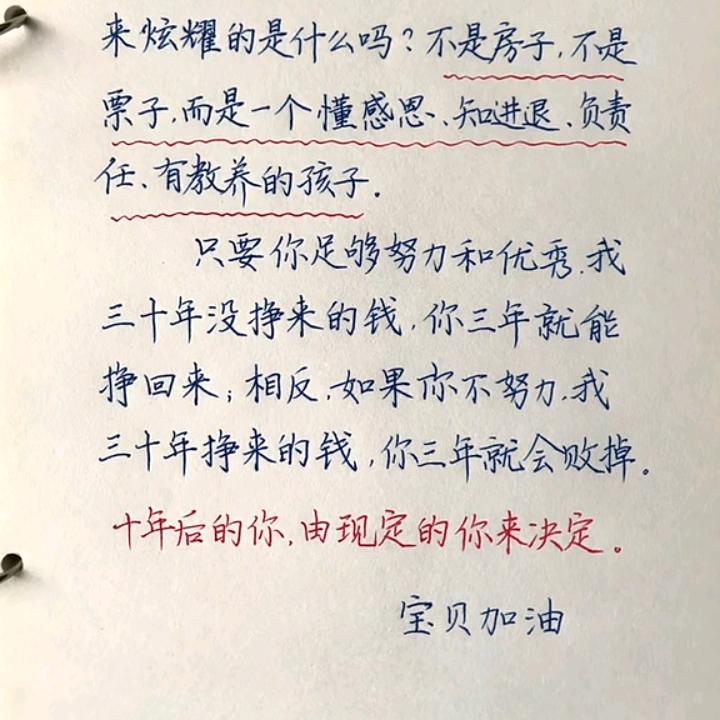 来炫耀的是什么吗？不是房子，不是
票子，而是一个懂感恩、知进退、负责
任、有教养的孩子．
只要你足够努力和优秀，我
三十年没挣来的钱，你三年就能
挣回来；相反，如果你不努力，我
三十年挣来的钱，你三年就会败掉。
十年后的你，由现定的你来决定。
宝贝加油